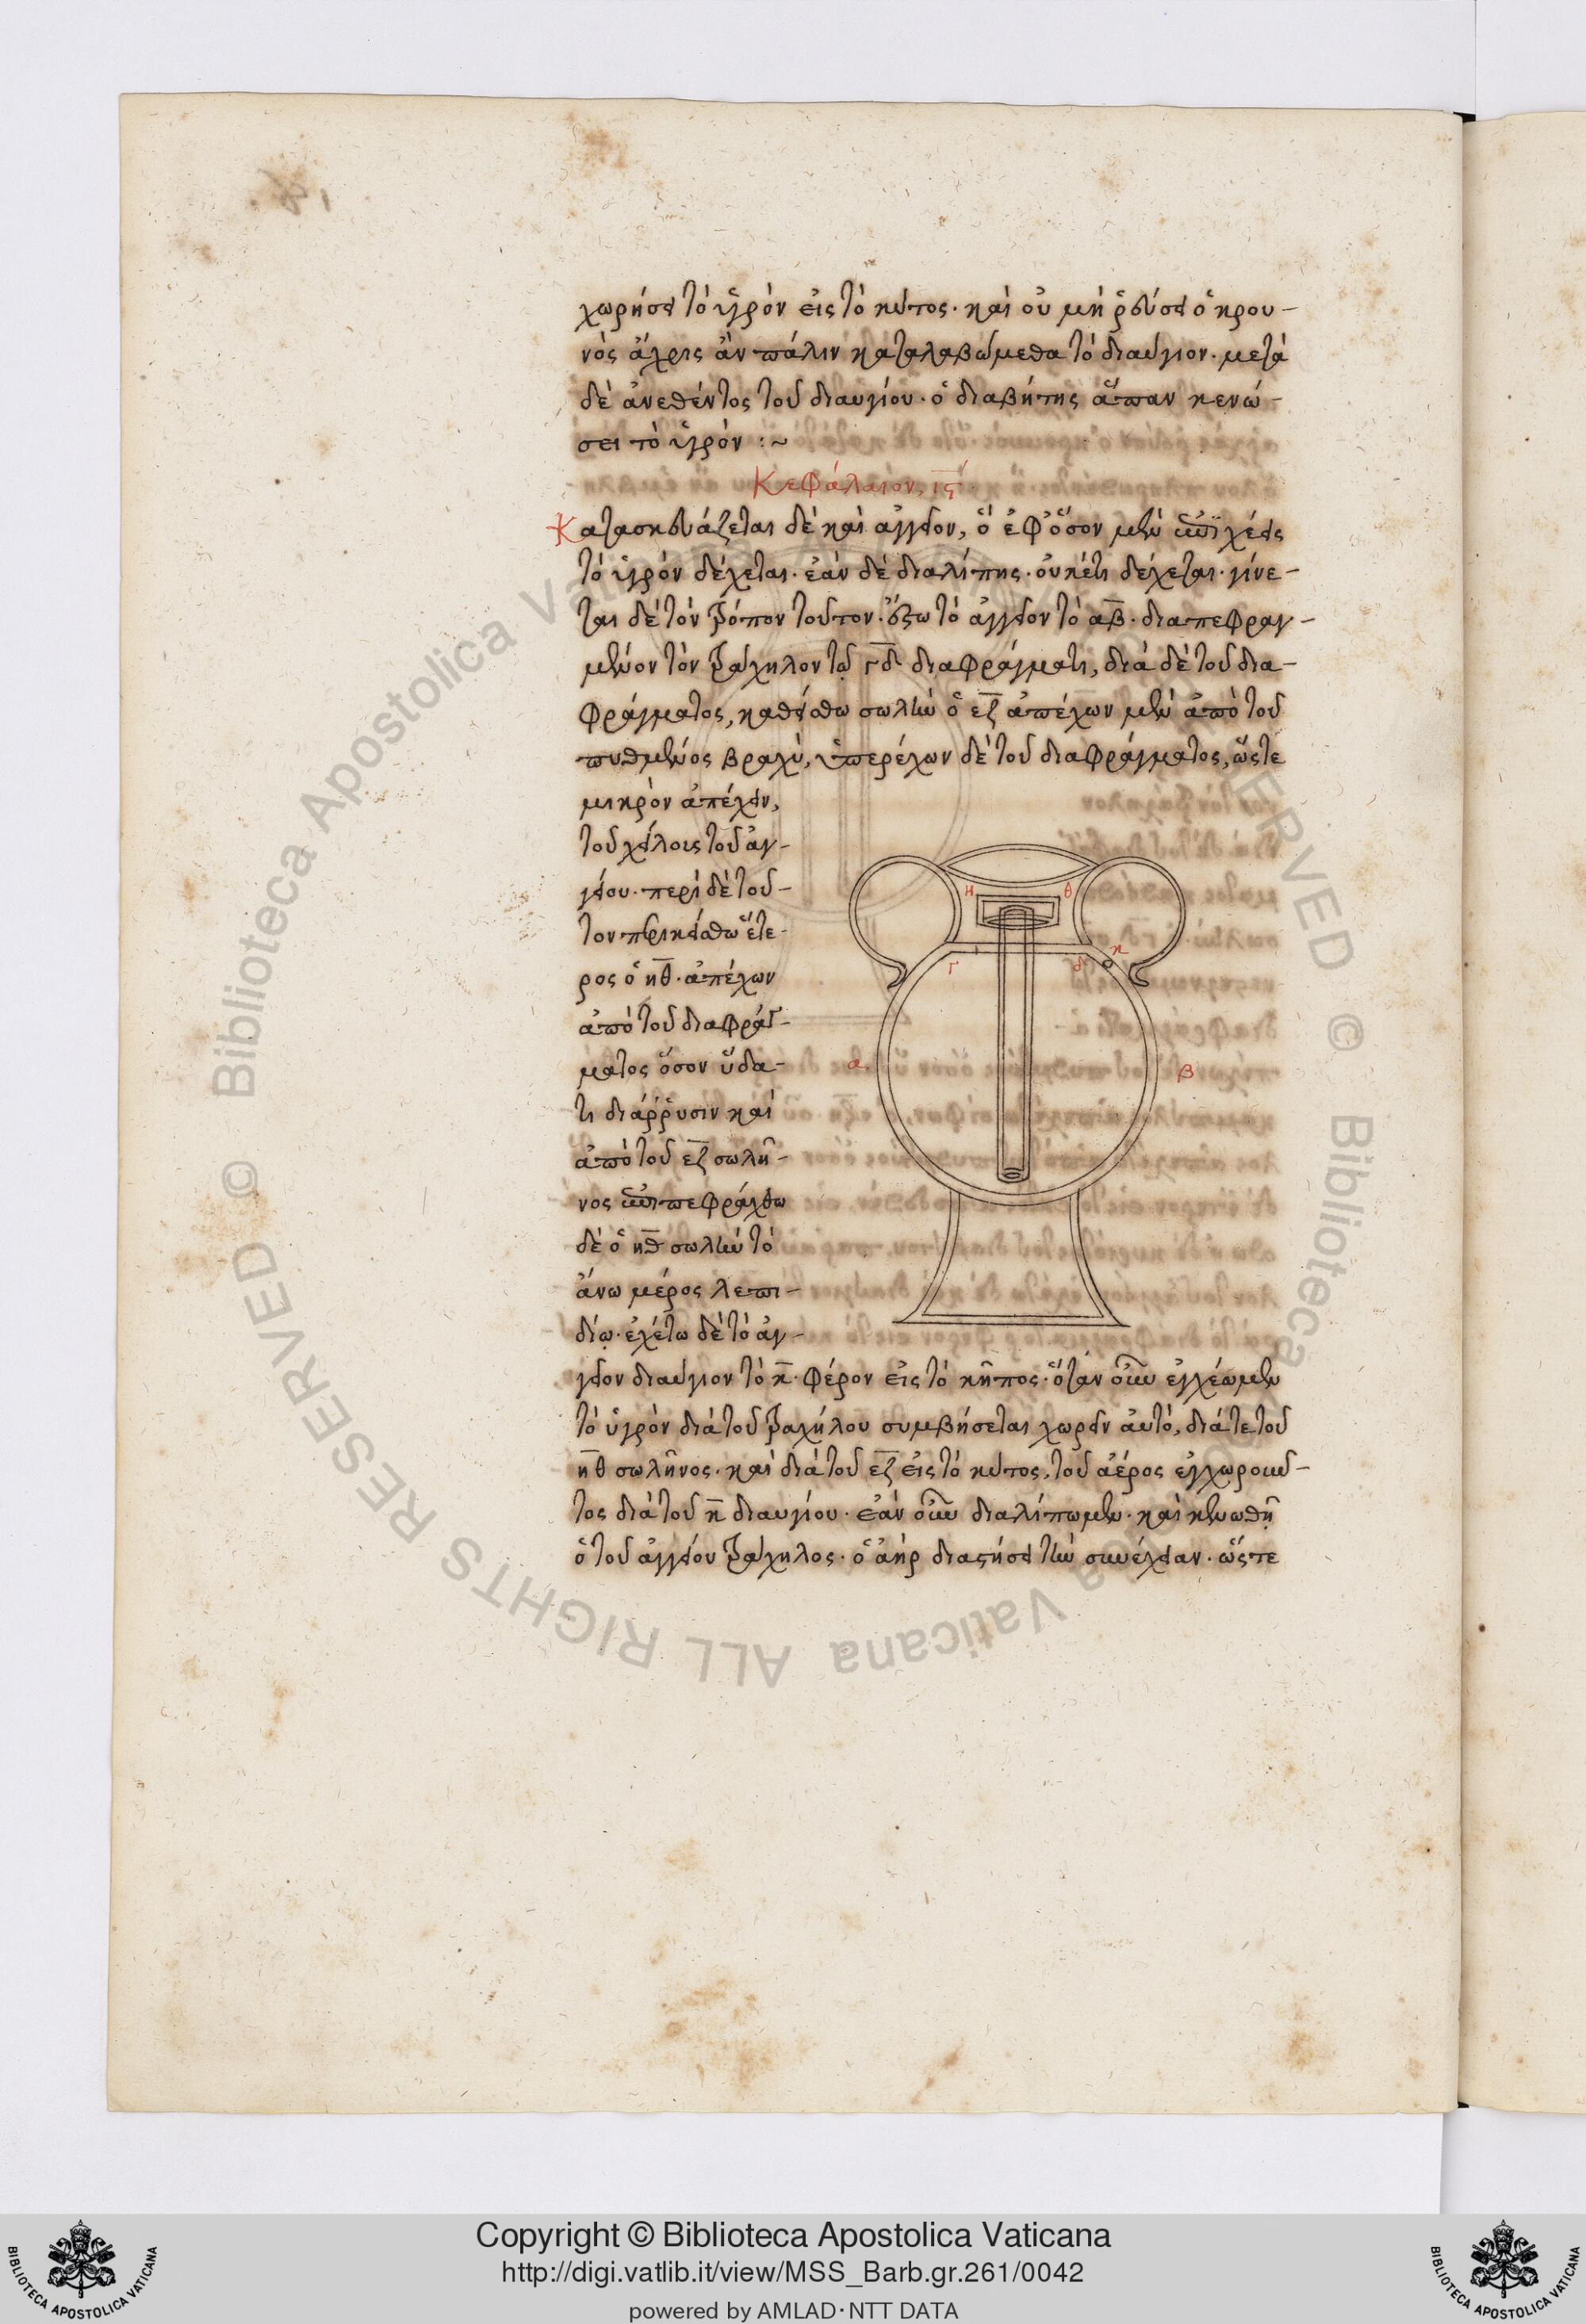 χωρήσει τὸ ὑγρὸν εἰς τὸ κύτος· καὶ οὐ μὴ ῥεύσει ὁ κρου-
νὸς ἄχρις ἂν πάλιν καταλαβώμεθα τὸ διαύγιον· μετὰ
δὲ ἀνεθέντος τοῦ διαυγίου· ὁ διαβήτης ἅπαν κενώ-
σει τὸ ὑγρόν :~
Κεφάλαιον, ις
Κατασκευάζεται δὲ καὶ ἀγγεῖον, ὃ ἐφ' ὅσον μὲν ἐπιχέεις
τὸ ὑγρὸν δέχεται· ἐὰν δὲ διαλίπης· οὐκέτι δέχεται· γίνε-
ται δὲ τὸν τρόπον τοῦτον· ἔστω τὸ ἀγγεῖον τὸ αβ· διαπεφραγ-
μένον τὸν τράχηλον τῷ γδ διαφράγματι, διὰ δὲ τοῦ δια-
φράγματος, καθείσθω σωλὴν ὁ εζ ἀπέχων μὲν ἀπὸ τοῦ
πυθμένος βραχὺ, ὑπερέχων δὲ τοῦ διαφράγματος, ὥστε
μικρὸν ἀπέχειν,
τοῦ χείλους τοῦ ἀγ-
γείου· περὶ δὲ τοῦ-
τον περικείσθω ἕτε-
ρος ὁ ηθ· ἀπέχων
ἀπὸ τοῦ διαφράγ-
ματος ὅσον ὕδα-
τι διάρρυσιν καὶ
ἀπὸ τοῦ εζ σωλῆ-
νος ἐπιπεφράχθω
δὲ ὁ ηθ σωλὴν τὸ
ἄνω μέρος λεπι-
δίῳ· ἐχέτω δὲ τὸ ἀγ-
γεῖον διαύγιον τὸ κ· φέρον εἰς τὸ κῆπος· ὅταν οὖν ἐγχέωμεν
τὸ ὑγρὸν διὰ τοῦ τραχήλου συμβήσεται χωρεῖν αὐτὸ, διά τε τοῦ
ηθ σωλῆνος· καὶ διὰ τοῦ εζ εἰς τὸ κύτος, τοῦ ἀέρος ἐγχωροῦν-
τος διὰ τοῦ κ διαυγίου· ἐὰν οὖν διαλίπωμεν· καὶ κενωθῇ
ὁ τοῦ ἀγγείου τράχηλος· ὁ ἀὴρ διαστήσει τὴν συνέχειαν· ὥστε
η
θ
γ
δ
κ
α
β
Biblioteca Apostolica Vaticana ALL RIGHTS RESERVED ©
Copyright © Biblioteca Apostolica Vaticana
http://digi.vatlib.it/view/MSS_Barb.gr.261/0042
powered by AMLAD·NTT DATA
BIBLIOTECA APOSTOLICA VATICANA
BIBLIOTECA APOSTOLICA VATICANA